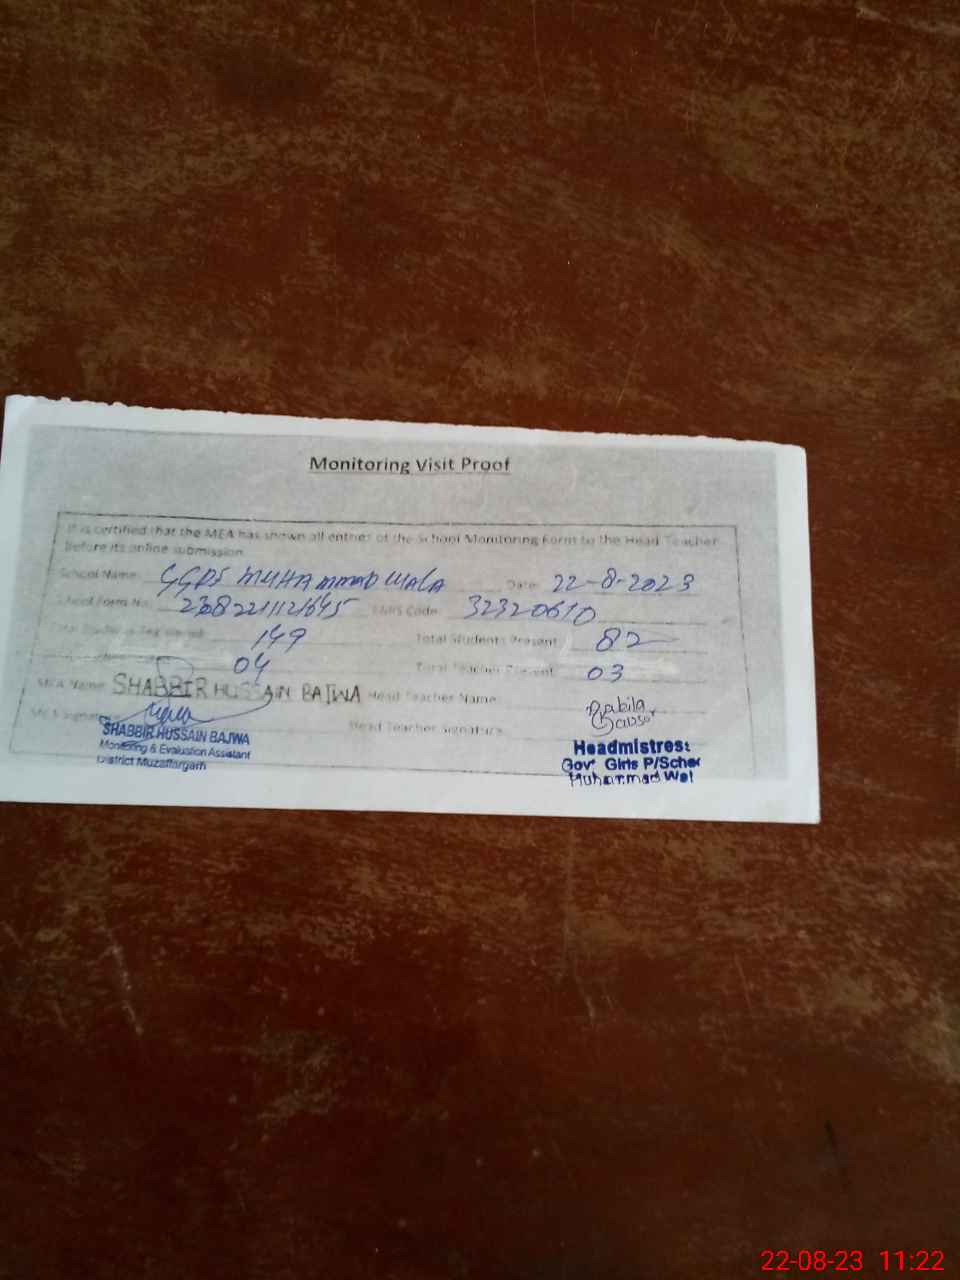 Monitoring Visit Proof
It is certified that the MEA has shown all entries of the School Monitoring Form to the Head Teacher
before its online submission
School Name: GGPS MUHAMMAD WALA Date: 22-8-2023
School Form No. EMIS Code: 32320610
149 Total Students Present 82
04 Total Teacher Present 03
MEA Name: SHABBIR HUSSAIN BAJWA Head Teacher Name
Head Teacher Signature
SHABBIR HUSSAIN BAJWA
Monitoring & Evaluation Assistant
District Muzaffargarh
Headmistress
Govt Girls P/School
Muhammad Wal
22-08-23 11:22